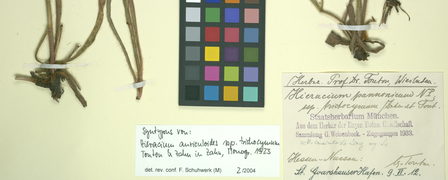 Syntypus von:
Hieracium auriculoides ssp. trichocymum
Touton & Zahn in Zahn, Monogr. 1923
det. rev. conf. F. Schuhwerk (M) 2/2004
Herbar. Prof. Dr. Touton, Wiesbaden.
Hieracium pannonicum N.P.
ssp. trichocymum Zahn et Tout.
Staatsherbarium München.
Aus dem Herbar der Bayer. Botan. Gesellschaft.
Sammlung G. Weisenbeck - Zugegangen 1933.
Hessen-Nassau:
St. Goarshauser Hafen. 9. VI. 12.